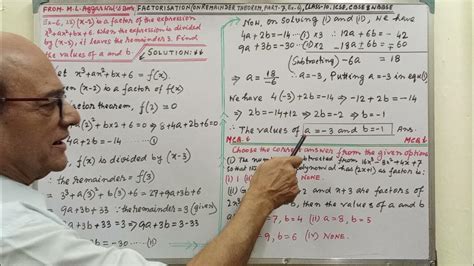 FROM. M.L. Aggarwal's Book, FACTORISATION (ON REMAINDER THEOREM, PART-7, Ex-6), CLASS-10, ICSE, CODE
Ex-6, is (x-2) is a factor of the expression
x³+ax²+bx+6. When the expression is divided
by (x-3), it leaves the remainder 3. Find
the values of a and b. SOLUTION:
Let x³+ax²+bx+6 = f(x)
(x-2) is a factor of f(x)
theorem, f(2) = 0
(2)²+2b+6=0 8+4a+2b+6=0
f(x) is divided by (x-3)
the remainder = f(3)
9a+3b+33 the remainder = 3 (given)
9a+3b+33=3 ⇒ 9a+3b=3-33
Now, on solving (i) and (ii), we have
4a+2b=-14 —(i) ×3 ∴ 12a+6b=-42
9a+3b=-30 —(ii) ×2 -18a+6b=-60
(Subtracting) -6a = 18
⇒ a = 18/-6 ∴ a=-3, Putting a=-3 in eqn(i)
We have 4(-3)+2b=-14 ⇒ -12+2b=-14
⇒ 2b=-14+12 ⇒ 2b=-2 ⇒ b=-1
∴ The values of a=-3 and b=-1 Ans.
MCQ.6 MCQ.6
Choose the correct answer from the given options
(i) The subtracted from 16x³-8x²+4x+7
has (2x+1) as factor is:
(i) 1 NONE.
and x+3 are factors of
2b, then the values of a and b
=7, b=4 (ii) a=8, b=5
=9, b=6 (iv) NONE.